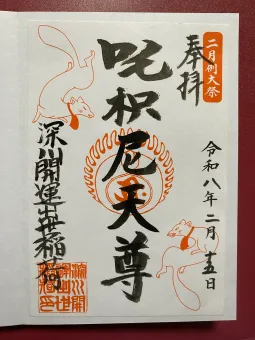 二月例大祭
奉拝
令和八年二月十五日
吒枳尼天尊
深川開運出世稲荷